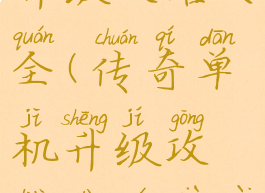 quán chuán qí dān
全(传奇单
jī shēng jí gōng
机升级攻